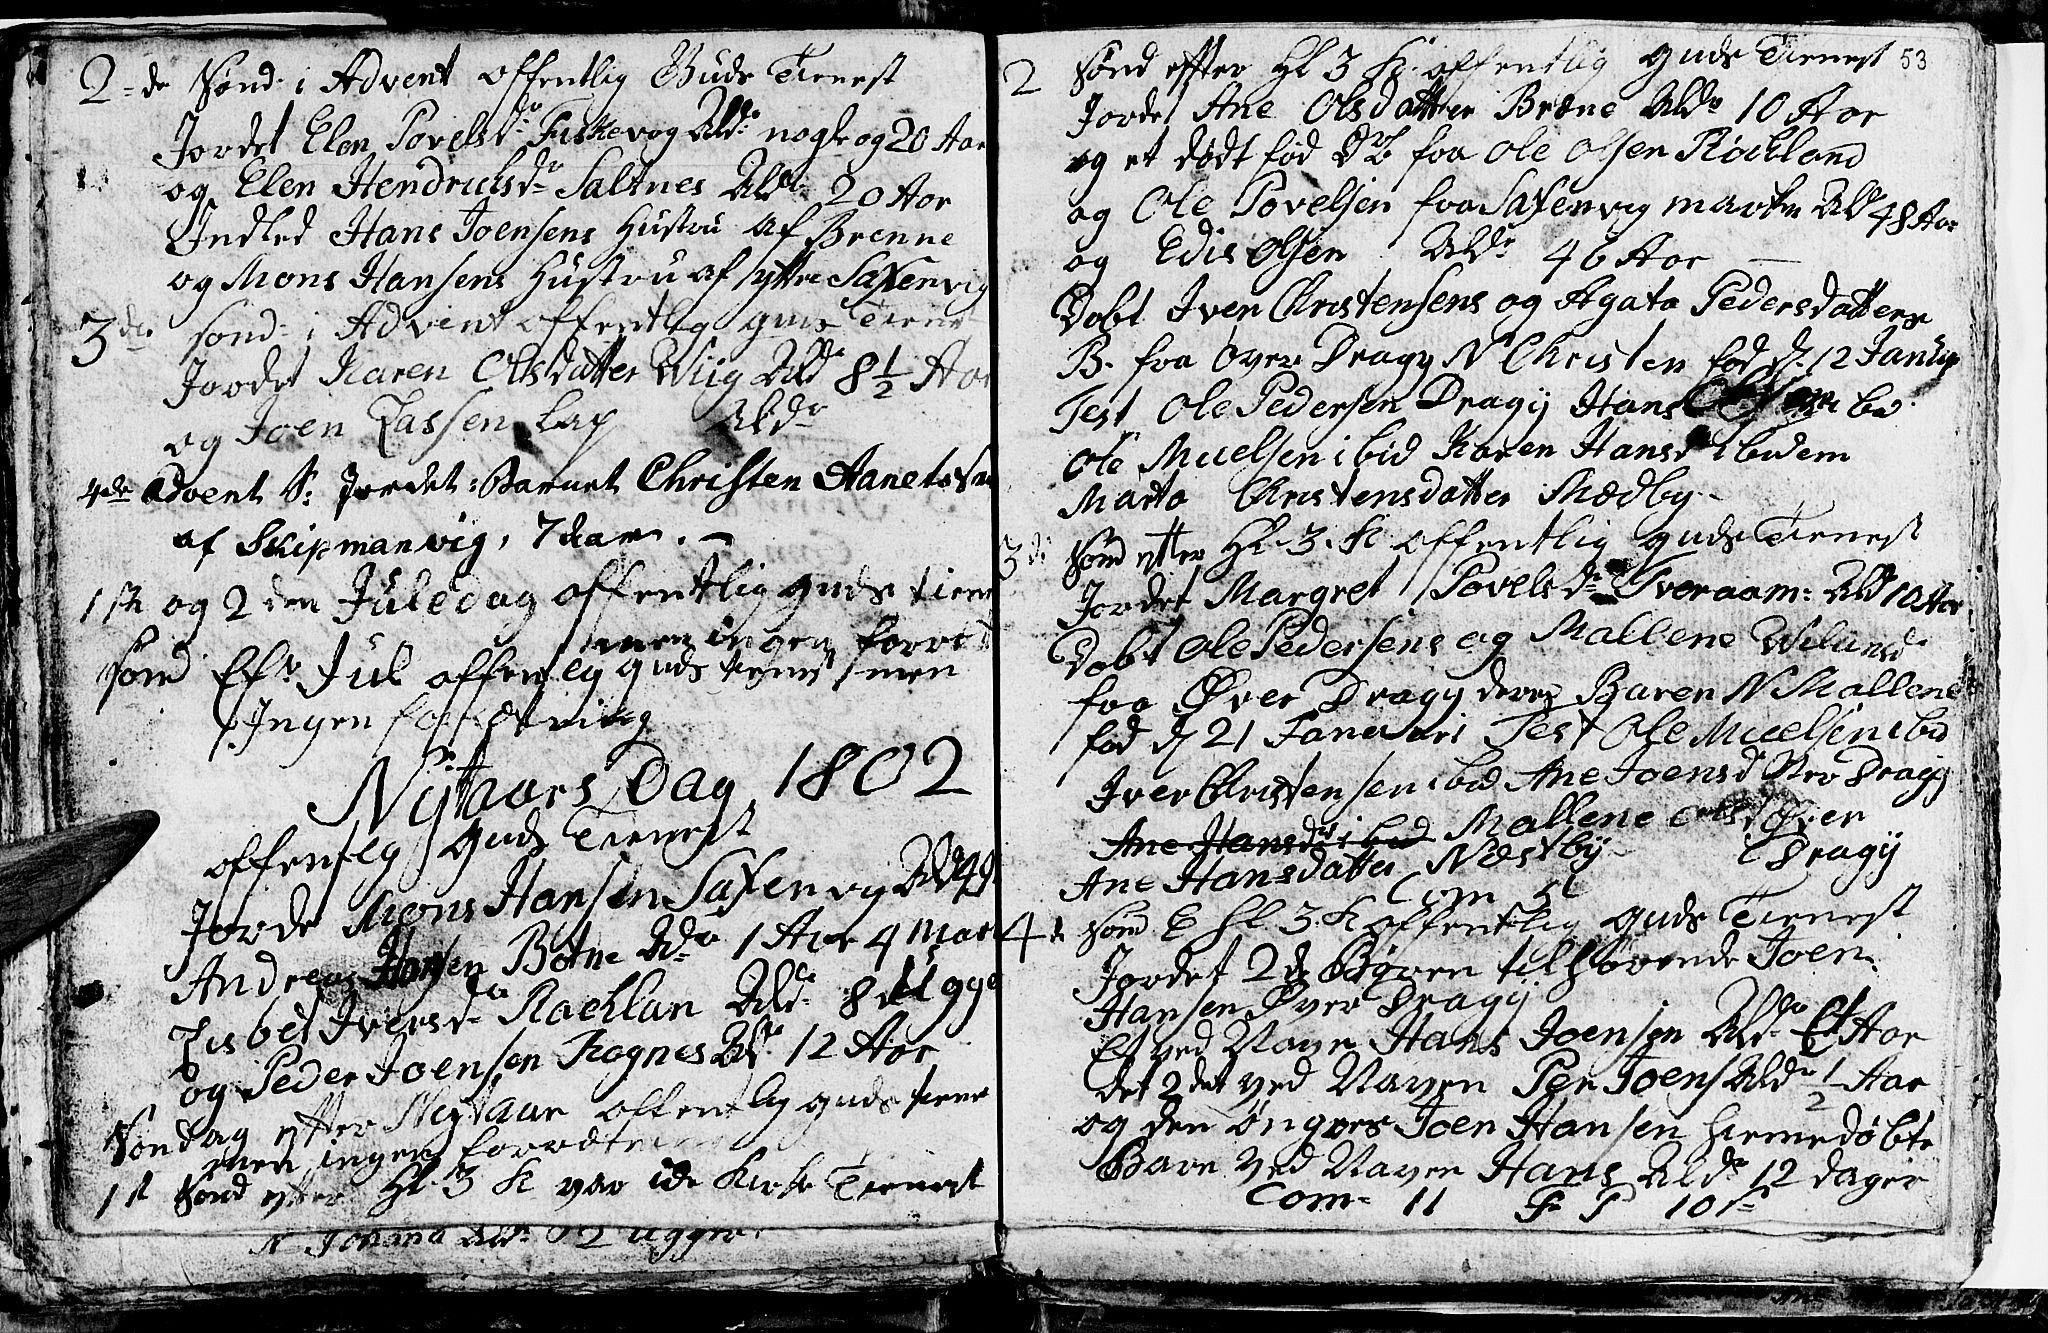 2-de Sønd: i Advent offentlig Guds Tienest
Jordet Elen Povelsdr Fiskevog Aldr nogle og 20 Aar
og Elen Hendrichsdr Saltnes Aldr 20 Aar
Indled Hans Joensens Hustru af Brenne
og Mons Hansens Hustru af yttre Saxenvig
3die sønd: i Advent offentlig guds Tienest
Jordet Karen Olsdatter Wiig Aldr 8 1/2 Aar
og Joen Lassen Lap Aldr
4de Advent S: Jordet: Barnet Christen Aanets
af Skipmanvig, 7 Aar. -
1ste og 2den Juledag offentlig guds tienest
men ingen forret
Sønd Eft Jul offentlig guds tienest men
Ingen forretning
Nytaars Dag 1802
offentlig guds Tienest
Jorde Mons Hansen Saxenvig Aldr 49
Andreas Hansen Botne Aldr 1 Aar 4 Maan
Lisbet Iversdr Rochlan Aldr 8 Ugger
og Peder Joensen Rognes Aldr 12 Aar
Søndag etter Nytaar offentlig guds tienes
men ingen forretning
1st Sønd etter Hl 3 K var icke Kirke Tienest
N Johana Aldr 2 ugger
53
2 Sønd effter Hl 3 K: offentlig guds Tienest
Jordet Ane Olsdatter Bræne Aldr 10 Aar
og et dødt fød DB fra Ole Olsen Rochland
og Ole Povelsen fra Saxenvig marken Aldr 48 Aar
og Edis Olsen Aldr 46 Aar -
Døbt Iver Christensens og Agata Pedersdatters
B. fra Øver Dragy N Christen fød d. 12 Januar
Test Ole Pedersen Dragij Hans ibid
Ole Muelsen ibid Karen Hansd ibidem
Marta Christensdatter Nedby -
3di Sønd etter Hl. 3. K offentlig guds Tienest
Jordet Margret Povelsdr Tveraam: Aldr 10 Aar
Døbt Ole Pedersens og Mallene Wilumsdr
fra Øver Dragy deres Baren N Mallene
fød d 21 Januari Test Ole Muelsen ibid
Iver Christensen ibid Ane Joensd Nero Dragij
Ane Hansdr ibid Mallene Olsd Øver
Ane Hansdatter Næstby - Dragij
Com 51
4de Sønd E Hl. 3. K offentlig guds Tienest
Jordet 2de Børen tilhørende Joen
Hansen Øver Dragij
Et ved Navn Hans Joensen Aldr Et Aar
det 2det ved Naven Per Joens Aldr 1/2 Aar
og den øngres Joen Hansen hiemedøbte
Barn ved Naven Hans Aldr 12 dager
Com- 11 F P 10